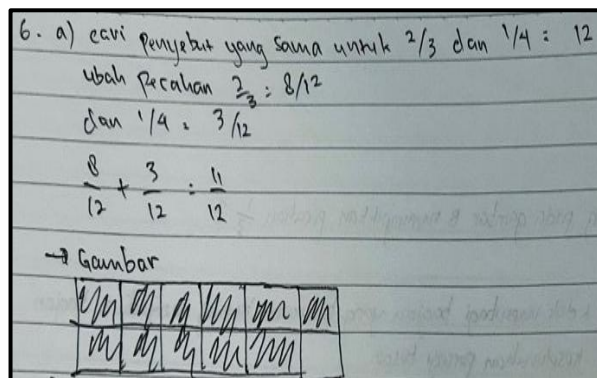 6. a) cari penyebut yang sama untuk 2/3 dan 1/4 = 12
ubah pecahan 2/3 = 8/12
dan 1/4 = 3/12
8/12 + 3/12 = 11/12
→ Gambar